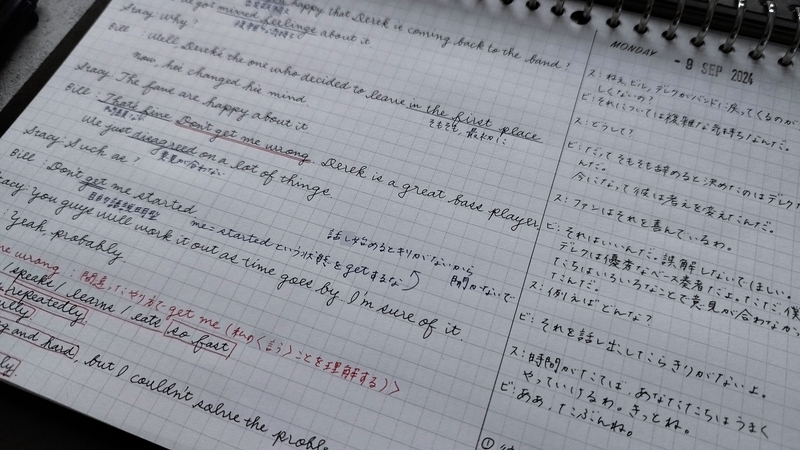 happy that Derek is coming back to the band?
got mixed feelings about it
Stacy: Why?
Bill: Well. Derek's the one who decided to leave in the first place
そもそも, 最初に
now, he's changed his mind
Stacy: The fans are happy about it
Bill: That's fine Don't get me wrong. Derek is a great bass player.
We just disagreed on a lot of things.
意見が合わない
Stacy: Such as?
Bill: Don't get me started
me = started という状態を get するな
話し始めるとキリがないから
聞かないで
Stacy: You guys will work it out as time goes by. I'm sure of it.
: Yeah, probably
me wrong : 間違ったやり方で get me (私の<言う>ことを理解する)>
/ speaks / learns / eats so fast
repeatedly
and hard, but I couldn't solve the proble
MONDAY - 9 SEP 2024
ス: ねえ, ビル, デレクがバンドに戻ってくるのが
しくないの?
ビ: それについては複雑な気持ちなんだ。
ス: どうして?
ビ: だってそもそも辞めると決めたのはデレク
んだ。
今になって彼は考えを変えたんだ。
ス: ファンはそれを喜んでいるわ。
ビ: それはいいんだ。誤解しないでほしい。
デレクは優秀なベース奏者だよ。ただ, 僕
たちはいろいろなことで意見が合わなかっ
たんだ。
ス: 例えばどんな?
ビ: それを話し出したらきりがないよ。
ス: 時間がたては, あなたたちはうまく
やっていけるわ。きっとね。
ビ: ああ, たぶんね。
①